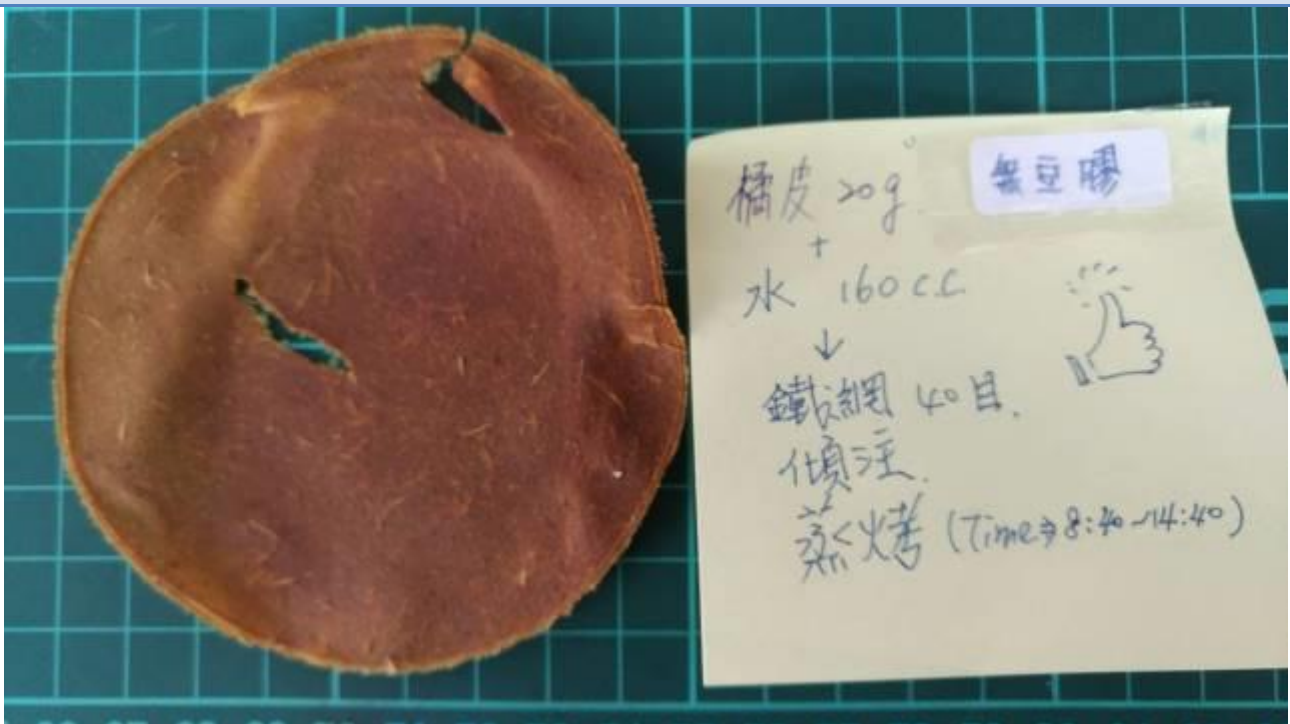 無豆膠
橘皮 20g
+
水 160 c.c.
↓
鐵網 40目.
傾注.
蒸烤 (Time⇒8:40~14:40)